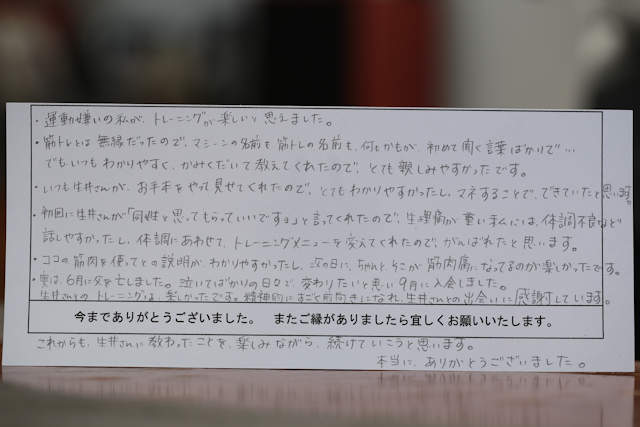 ・運動嫌いの私が、トレーニングが楽しいと思えました。
・筋トレとは無縁だったので、マシーンの名前も筋トレの名前も、何もかもが、初めて聞く言葉ばかりで…
でもいつもわかりやすく、かみくだいて教えてくれたので、とても親しみやすかったです。
・いつも生井さんが、お手本をやって見せてくれたので、とてもわかりやすかったし、マネすることで、できていたと思います。
・初回に生井さんが「同性と思ってもらっていいです。」と言ってくれたので、生理痛が重い私には、体調不良など
話しやすかったし、体調にあわせて、トレーニングメニューを変えてくれたので、がんばれたと思います。
・ココの筋肉を使ってとの説明が、わかりやすかったし、次の日に、ちゃんとそこが筋肉痛になってるのが楽しかったです。
・実は、6月に父を亡しました。泣いてばかりの日々で、変わりたいと思い9月に入会しました。
生井さんとのトレーニングは、楽しかったです。精神的にもとても前向きになれ、生井さんとの出会いに感謝しています。
今までありがとうございました。　またご縁がありましたら宜しくお願いいたします。
これからも、生井さんに教わったことを、楽しみながら、続けていこうと思います。
本当に、ありがとうございました。